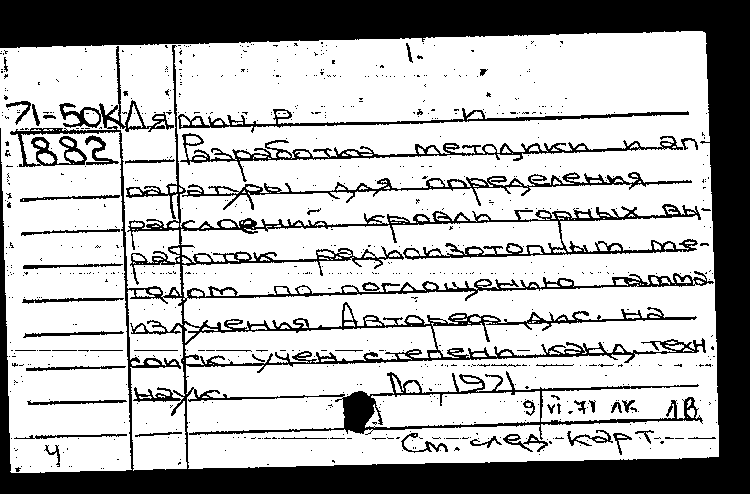 1.
71-50К Лямин, Р И
1882 Разработка методики и ап-
паратуры для определения
расслоений кровли горных вы-
работок радиоизотопным ме-
тодом по поглощению гамма-
излучения. Автореф. дис. на
соиск. учен. степени канд. техн.
наук. М. 1971.
9 VI.71 ЛК ЛВ
См. след. карт.
4